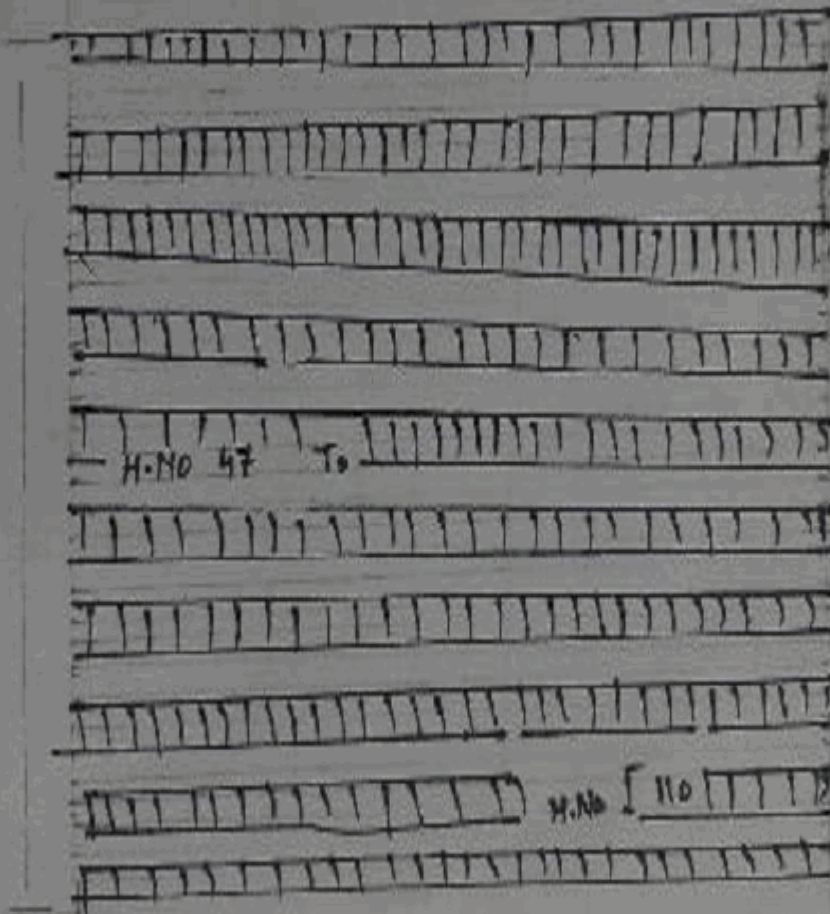 H.NO 47 To
H.No [ 110